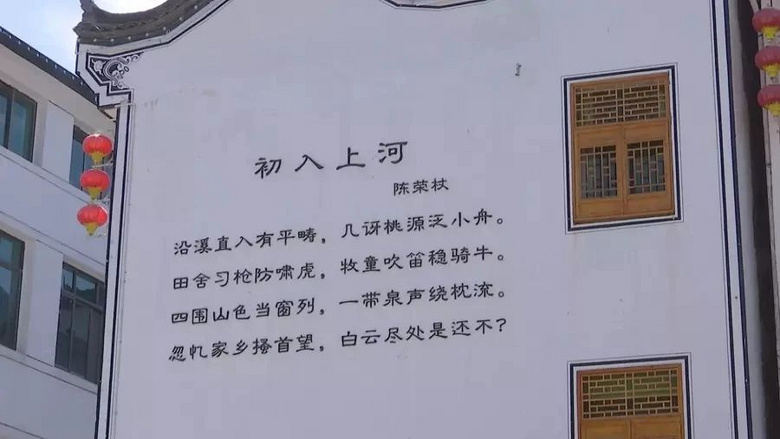 初入上河
陈荣杖
沿溪直入有平畴，几讶桃源泛小舟。
田舍习枪防啸虎，牧童吹笛稳骑牛。
四围山色当窗列，一带泉声绕枕流。
忽忆家乡搔首望，白云尽处是还不？